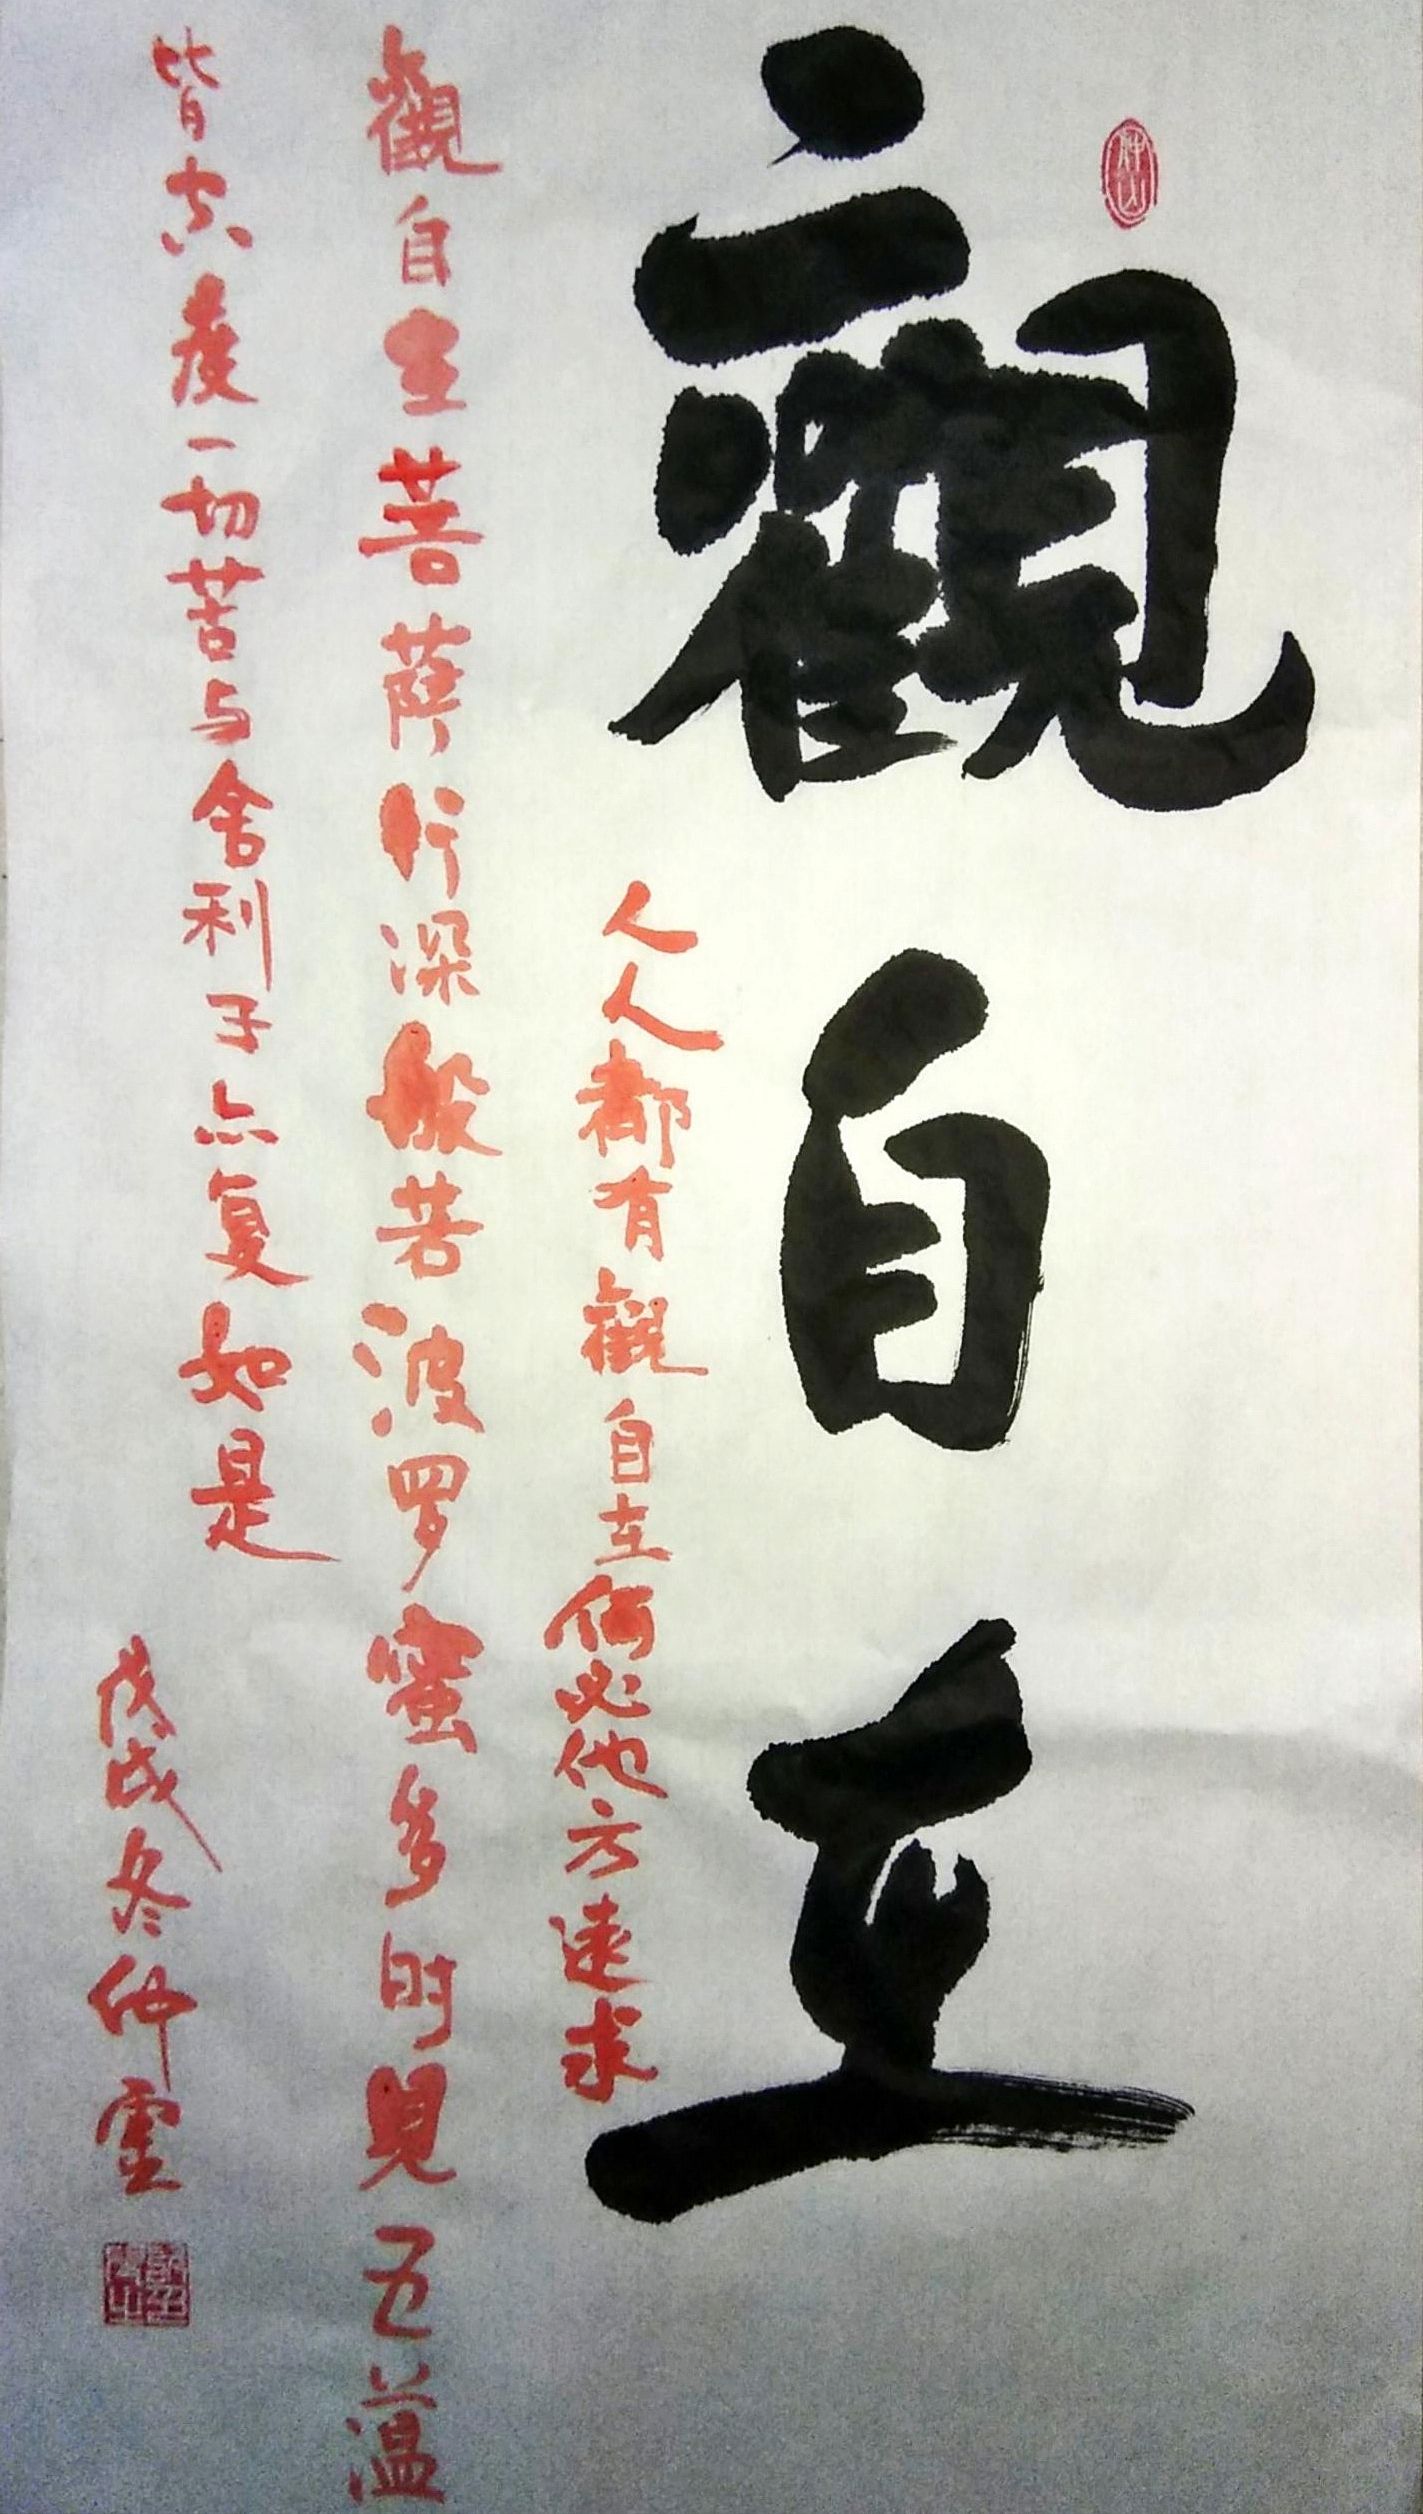 觀自在
人人都有觀自在何必他方遠求
觀自在菩薩行深般若波罗蜜多时見五蕰
皆空度一切苦与舍利子亦复如是
戊戌冬仲霊